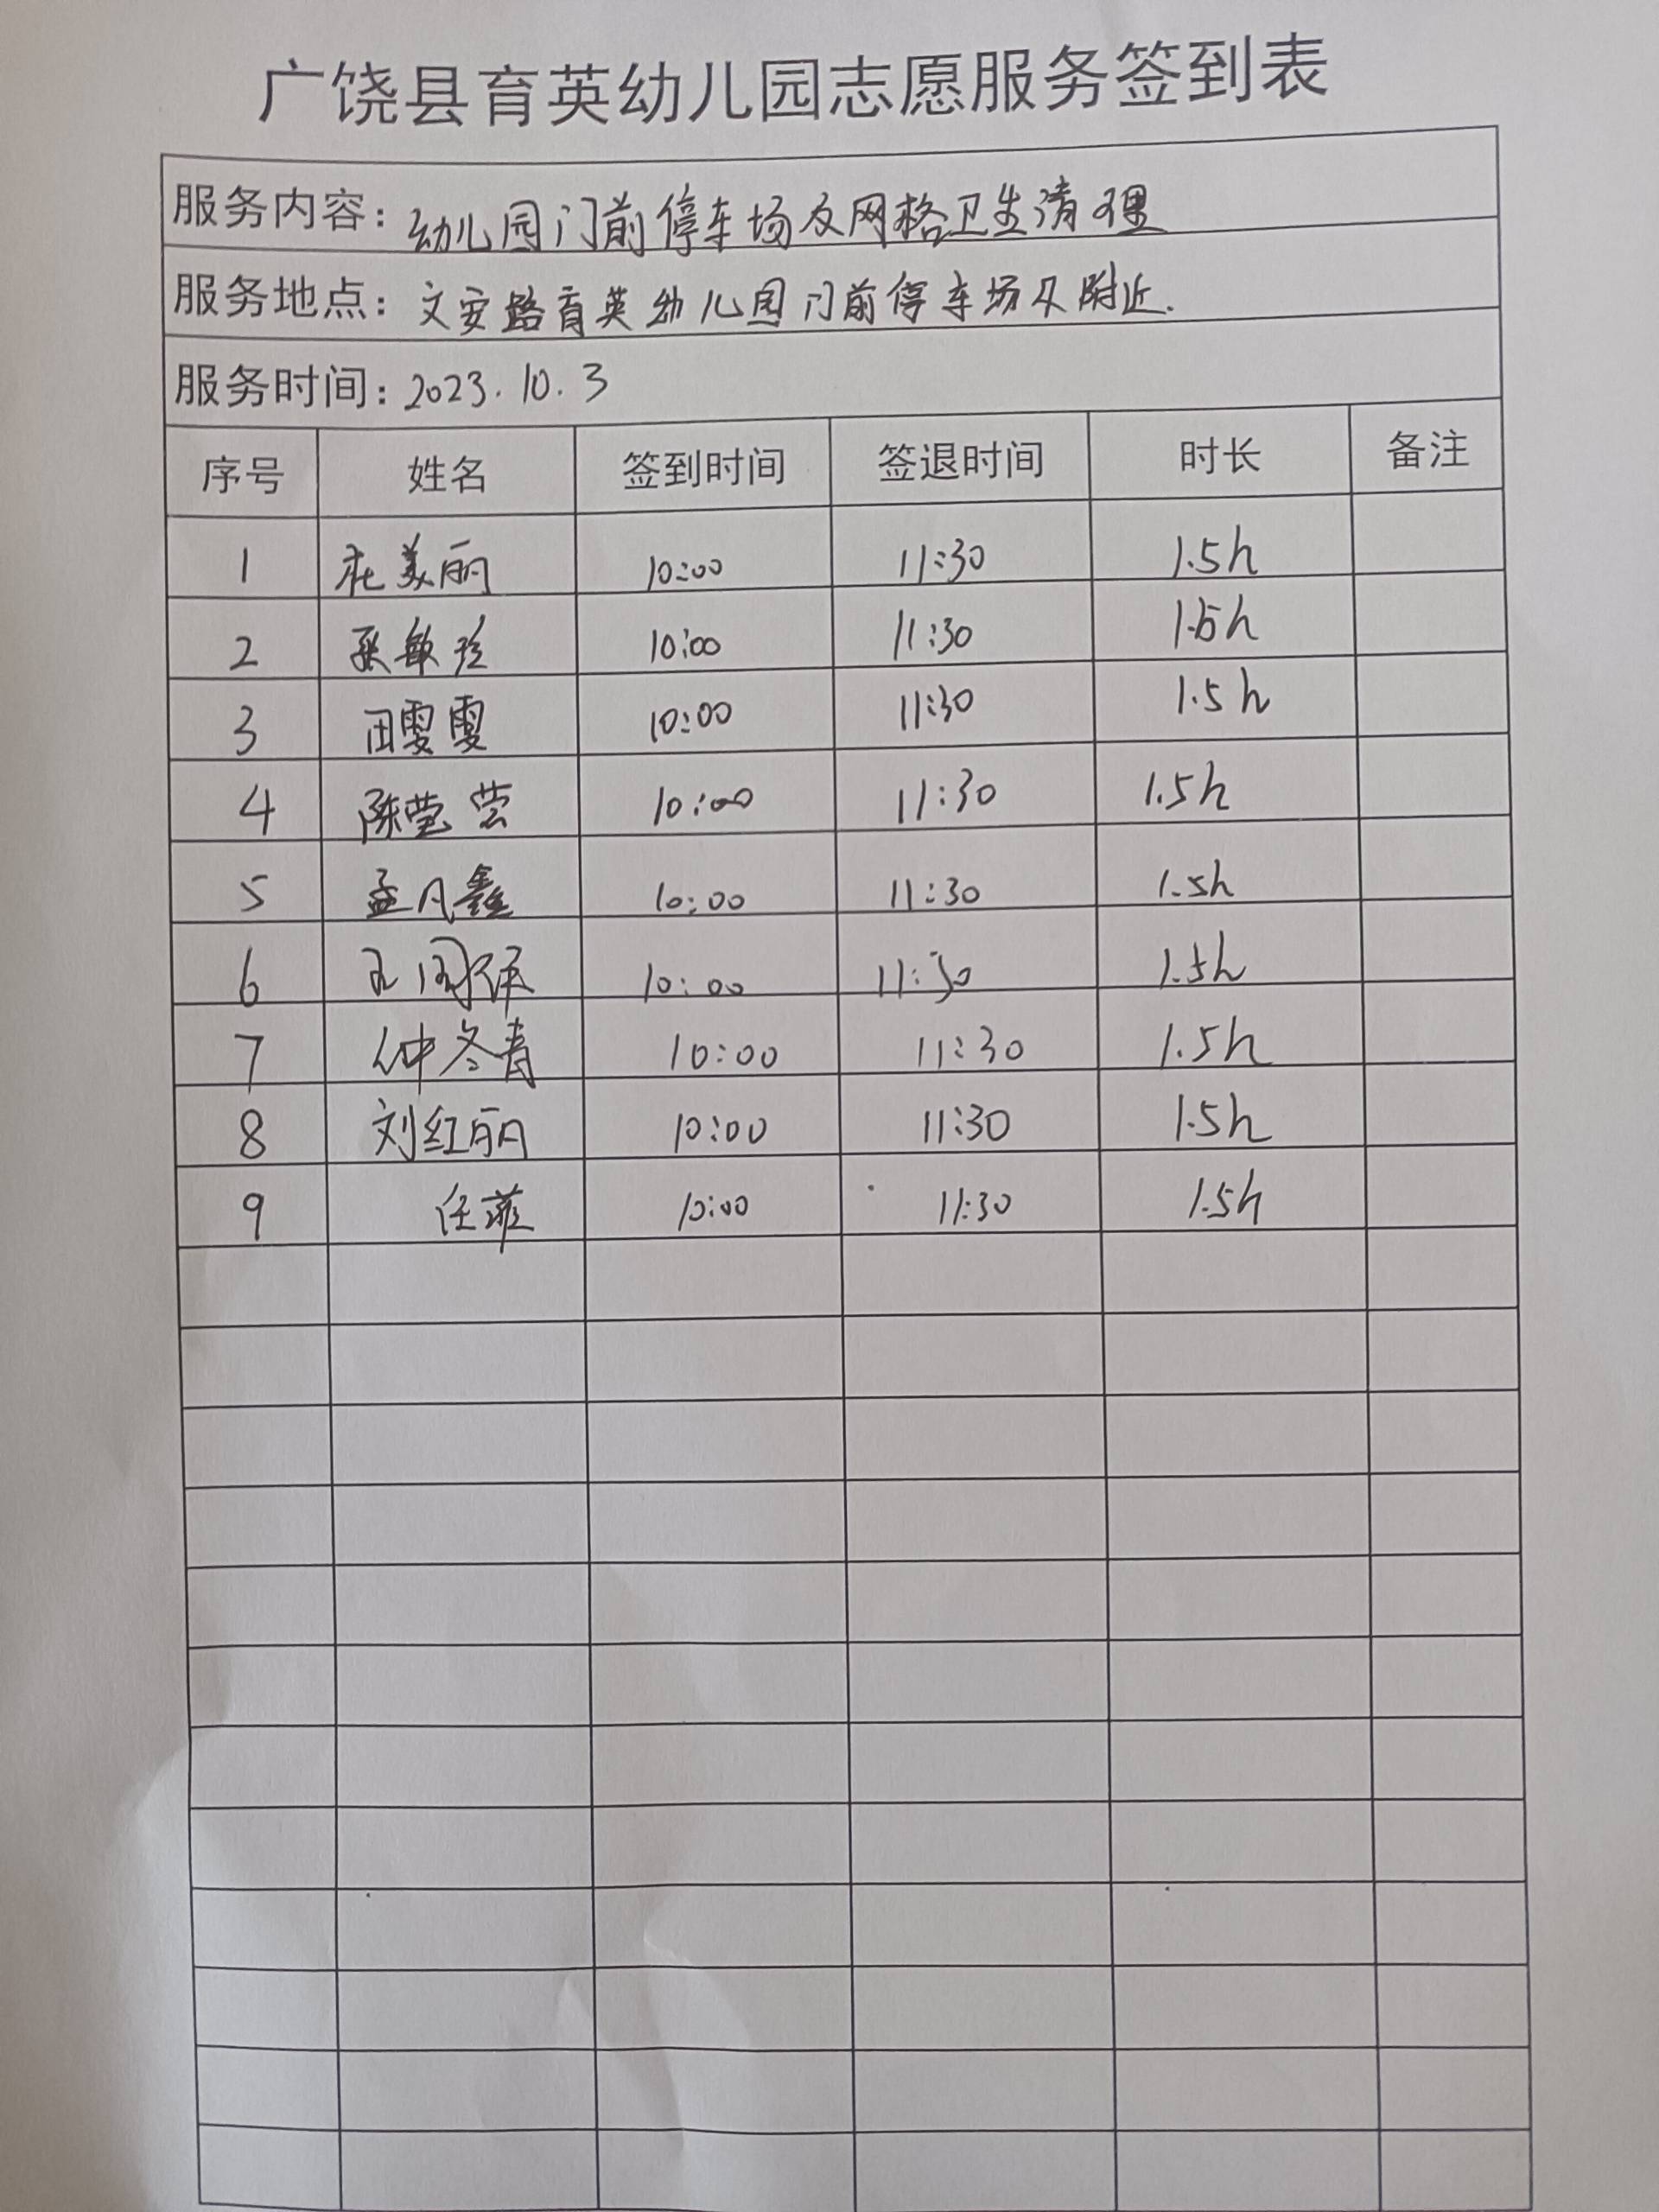 广饶县育英幼儿园志愿服务签到表
服务内容：幼儿园门前停车场及网格卫生清理
服务地点：文安路育英幼儿园门前停车场及附近.
服务时间：2023.10.3
序号 姓名 签到时间 签退时间 时长 备注
1 美丽 10:00 11:30 1.5h
2 张敏 10:00 11:30 1.5h
3 田雯雯 10:00 11:30 1.5h
4 陈莹莹 10:00 11:30 1.5h
5 孟凡鑫 10:00 11:30 1.5h
6 10:00 11:30 1.5h
7 仲冬青 10:00 11:30 1.5h
8 刘红丽 10:00 11:30 1.5h
9 任菲 10:00 11:30 1.5h